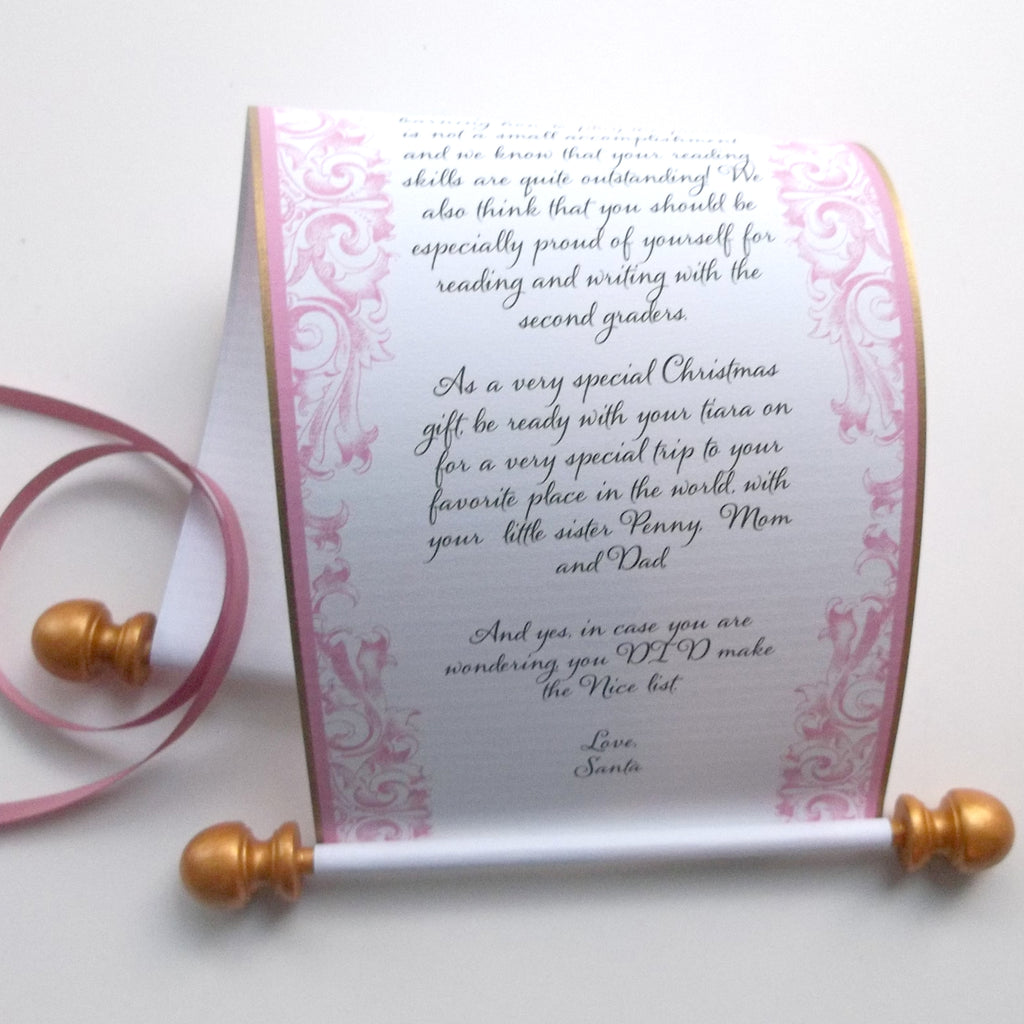 learning how to play
is not a small accomplishment
and we know that your reading
skills are quite outstanding! We
also think that you should be
especially proud of yourself for
reading and writing with the
second graders.
As a very special Christmas
gift, be ready with your tiara on
for a very special trip to your
favorite place in the world, with
your little sister Penny, Mom
and Dad.
And yes, in case you are
wondering, you DID make
the Nice list.
Love,
Santa